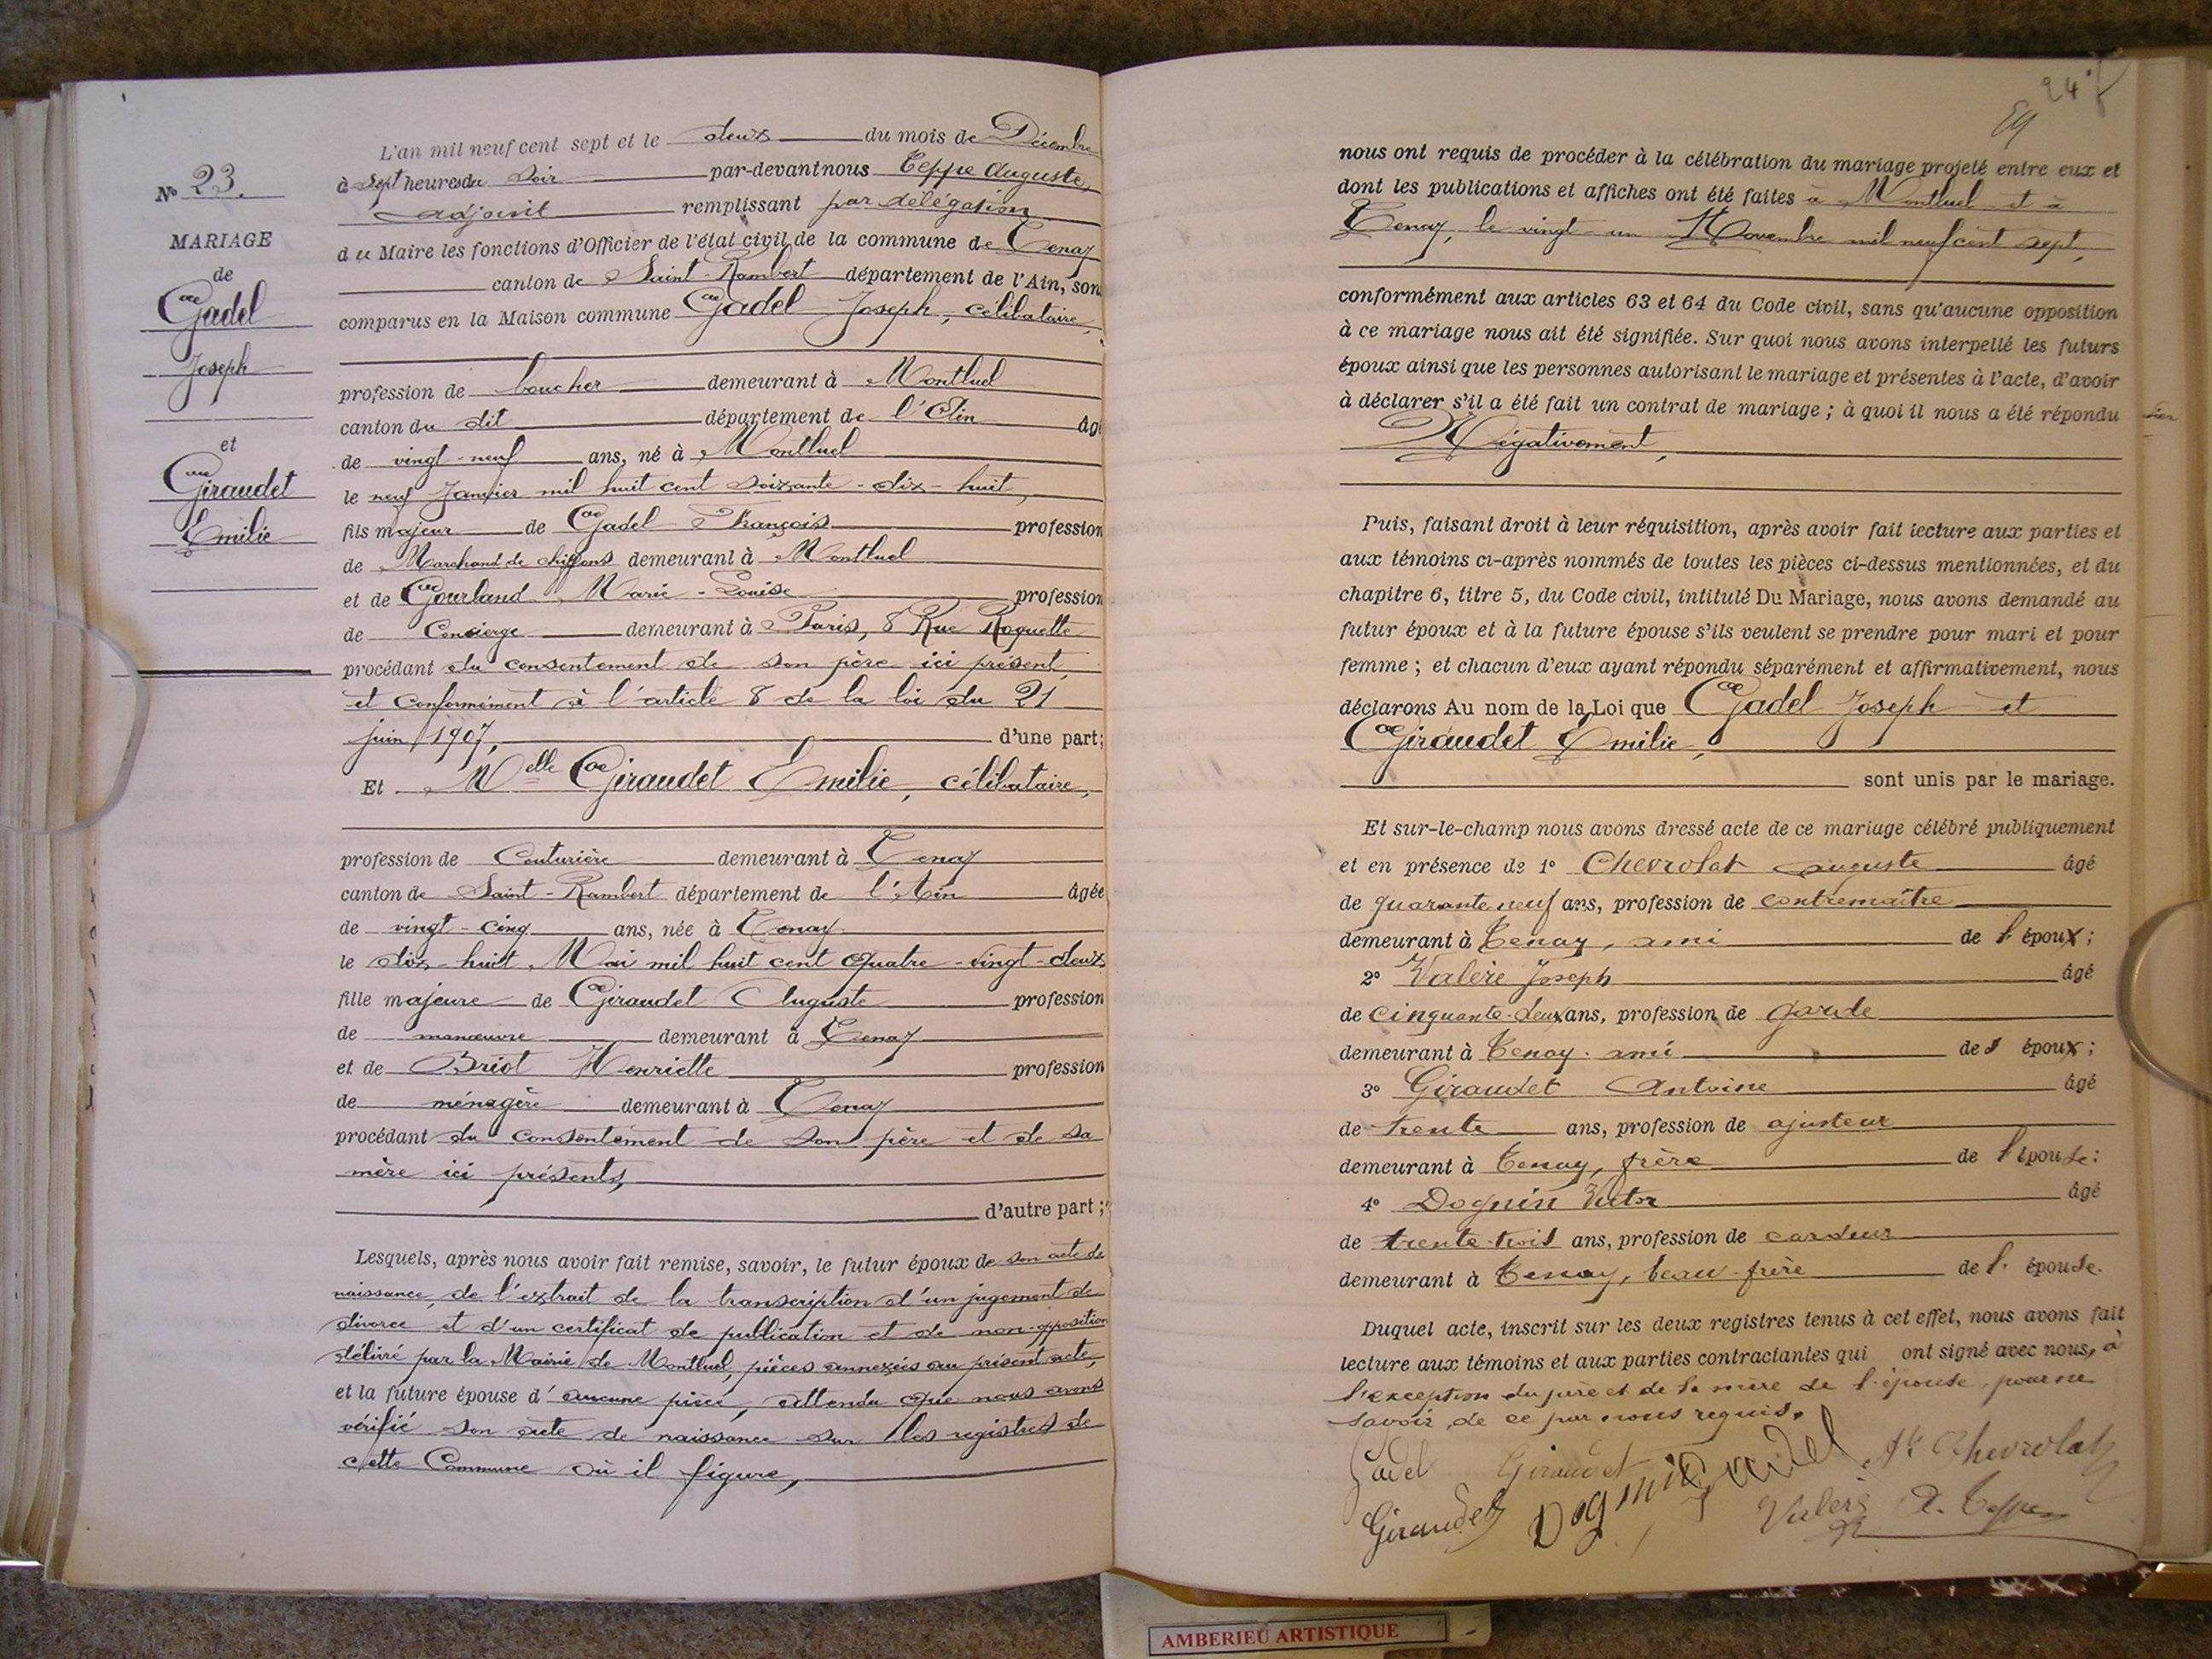 N° 23.
MARIAGE
de
Gadel
Joseph
et
Giraudet
Emilie
L'an mil neuf cent sept et le deux du mois de Décembre
à sept heures du soir par-devant nous Teppe Auguste,
adjoint remplissant par délégation
du Maire les fonctions d'Officier de l'état civil de la commune de Tenay
canton de Saint-Rambert département de l'Ain, son
comparus en la Maison commune Gadel Joseph, célibataire,
profession de boucher demeurant à Montluel
canton du dit département de l'Ain âg
de vingt-neuf ans, né à Montluel
le neuf Janvier mil huit cent soixante-dix-huit,
fils majeur de Gadel François profession
de Marchand de chiffons demeurant à Montluel
et de Gourland Marie-Louise profession
de Concierge demeurant à Paris, 8 Rue Roquette
procédant du consentement de son père ici présent,
et conformément à l'article 8 de la loi du 21
juin 1907, d'une part;
Et Melle Giraudet Emilie, célibataire,
profession de Couturière demeurant à Tenay
canton de Saint-Rambert département de l'Ain âgée
de vingt-cinq ans, née à Tenay
le dix-huit Mai mil huit cent quatre-vingt-deux
fille majeure de Giraudet Auguste profession
de manœuvre demeurant à Tenay
et de Briot Henriette profession
de ménagère demeurant à Tenay
procédant du consentement de son père et de sa
mère ici présents,
d'autre part;
Lesquels, après nous avoir fait remise, savoir, le futur époux de son acte de
naissance, de l'extrait de la transcription d'un jugement de
divorce et d'un certificat de publication et de non-opposition
délivré par la Mairie de Montluel, pièces annexées au présent acte,
et la future épouse d'aucune pièce, attendu que nous avons
vérifié son acte de naissance sur les registres de
cette Commune où il figure,
24
nous ont requis de procéder à la célébration du mariage projeté entre eux et
dont les publications et affiches ont été faites à Montluel et à
Tenay, le vingt-un Novembre mil neuf cent sept,
conformément aux articles 63 et 64 du Code civil, sans qu'aucune opposition
à ce mariage nous ait été signifiée. Sur quoi nous avons interpellé les futurs
époux ainsi que les personnes autorisant le mariage et présentes à l'acte, d'avoir
à déclarer s'il a été fait un contrat de mariage ; à quoi il nous a été répondu
Négativement,
Puis, faisant droit à leur réquisition, après avoir fait lecture aux parties et
aux témoins ci-après nommés de toutes les pièces ci-dessus mentionnées, et du
chapitre 6, titre 5, du Code civil, intitulé Du Mariage, nous avons demandé au
futur époux et à la future épouse s'ils veulent se prendre pour mari et pour
femme ; et chacun d'eux ayant répondu séparément et affirmativement, nous
déclarons Au nom de la Loi que Gadel Joseph et
Giraudet Emilie,
sont unis par le mariage.
Et sur-le-champ nous avons dressé acte de ce mariage célébré publiquement
et en présence de 1° Chevrolat Auguste âgé
de quarante neuf ans, profession de contremaître
demeurant à Tenay, ami de l'époux;
2° Valère Joseph âgé
de cinquante-deux ans, profession de garde
demeurant à Tenay. ami de l'époux;
3° Giraudet Antoine âgé
de trente ans, profession de ajusteur
demeurant à Tenay, frère de l'épouse:
4° Dognin Victor âgé
de trente-trois ans, profession de cardeur
demeurant à Tenay, beau-frère de l'épouse.
Duquel acte, inscrit sur les deux registres tenus à cet effet, nous avons fait
lecture aux témoins et aux parties contractantes qui ont signé avec nous, à
l'exception du père et de la mère de l'épouse pour ne
savoir, de ce par nous requis.
Gadel Giraudet Gadel At Chevrolat
Giraudet Dognin Valère A. Teppe
AMBERIEU ARTISTIQUE